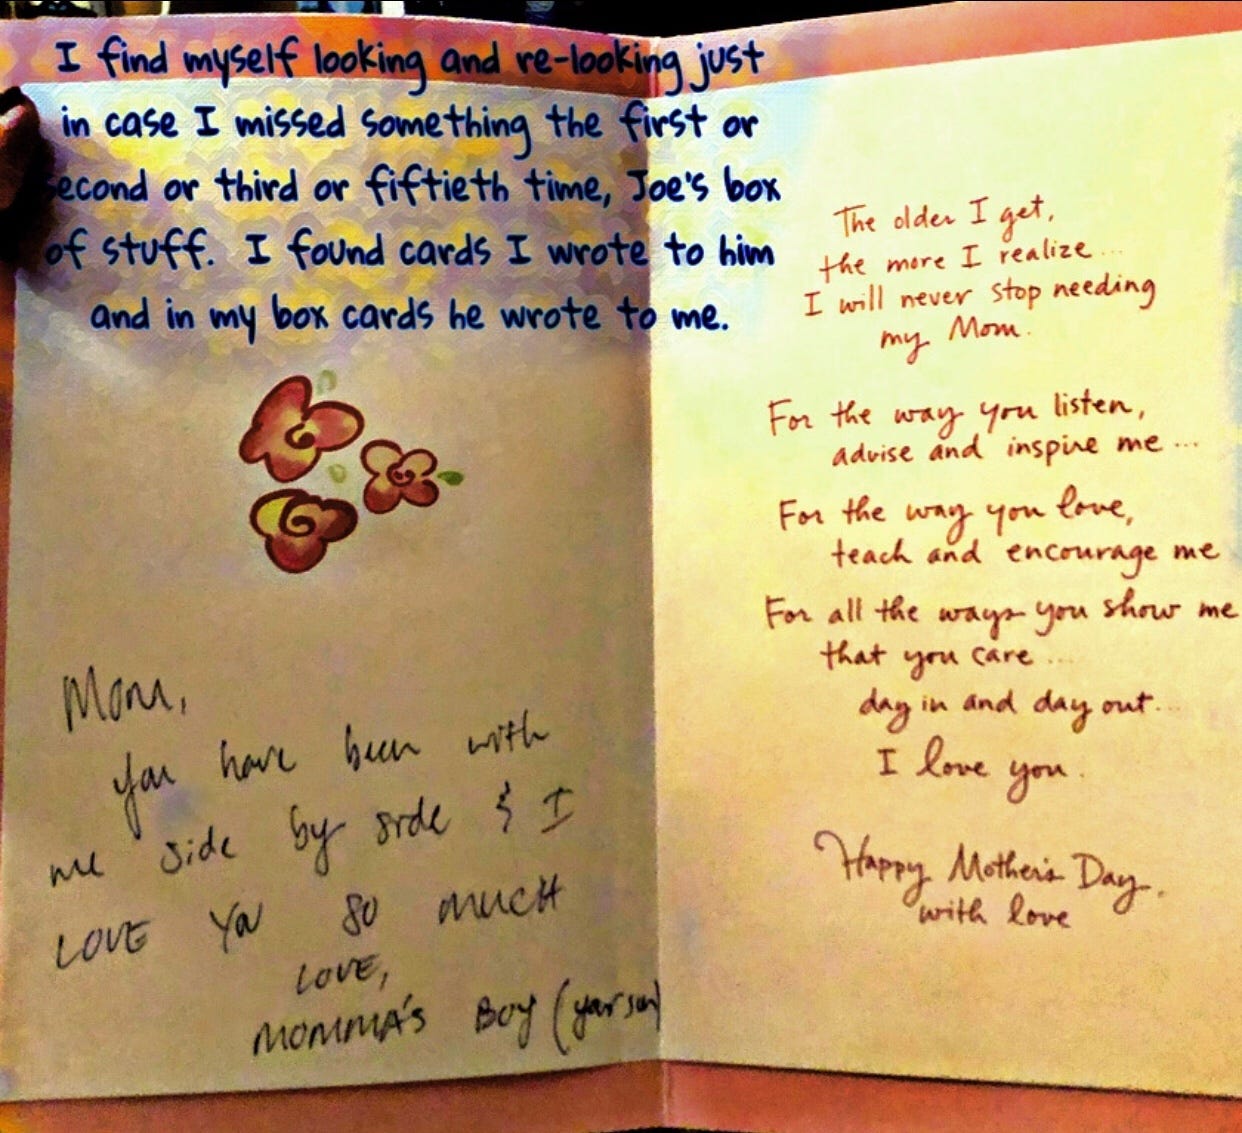 I find myself looking and re-looking just
in case I missed something the first or
second or third or fiftieth time, Joe's box
of stuff. I found cards I wrote to him
and in my box cards he wrote to me.
The older I get,
the more I realize...
I will never stop needing
my Mom.
For the way you listen,
advise and inspire me...
For the way you love,
teach and encourage me
For all the ways you show me
that you care...
day in and day out...
I love you.
Happy Mother's Day,
with love
Mom,
you have been with
me side by side & I
LOVE YOU SO MUCH
LOVE,
MOMMA'S BOY (your son)